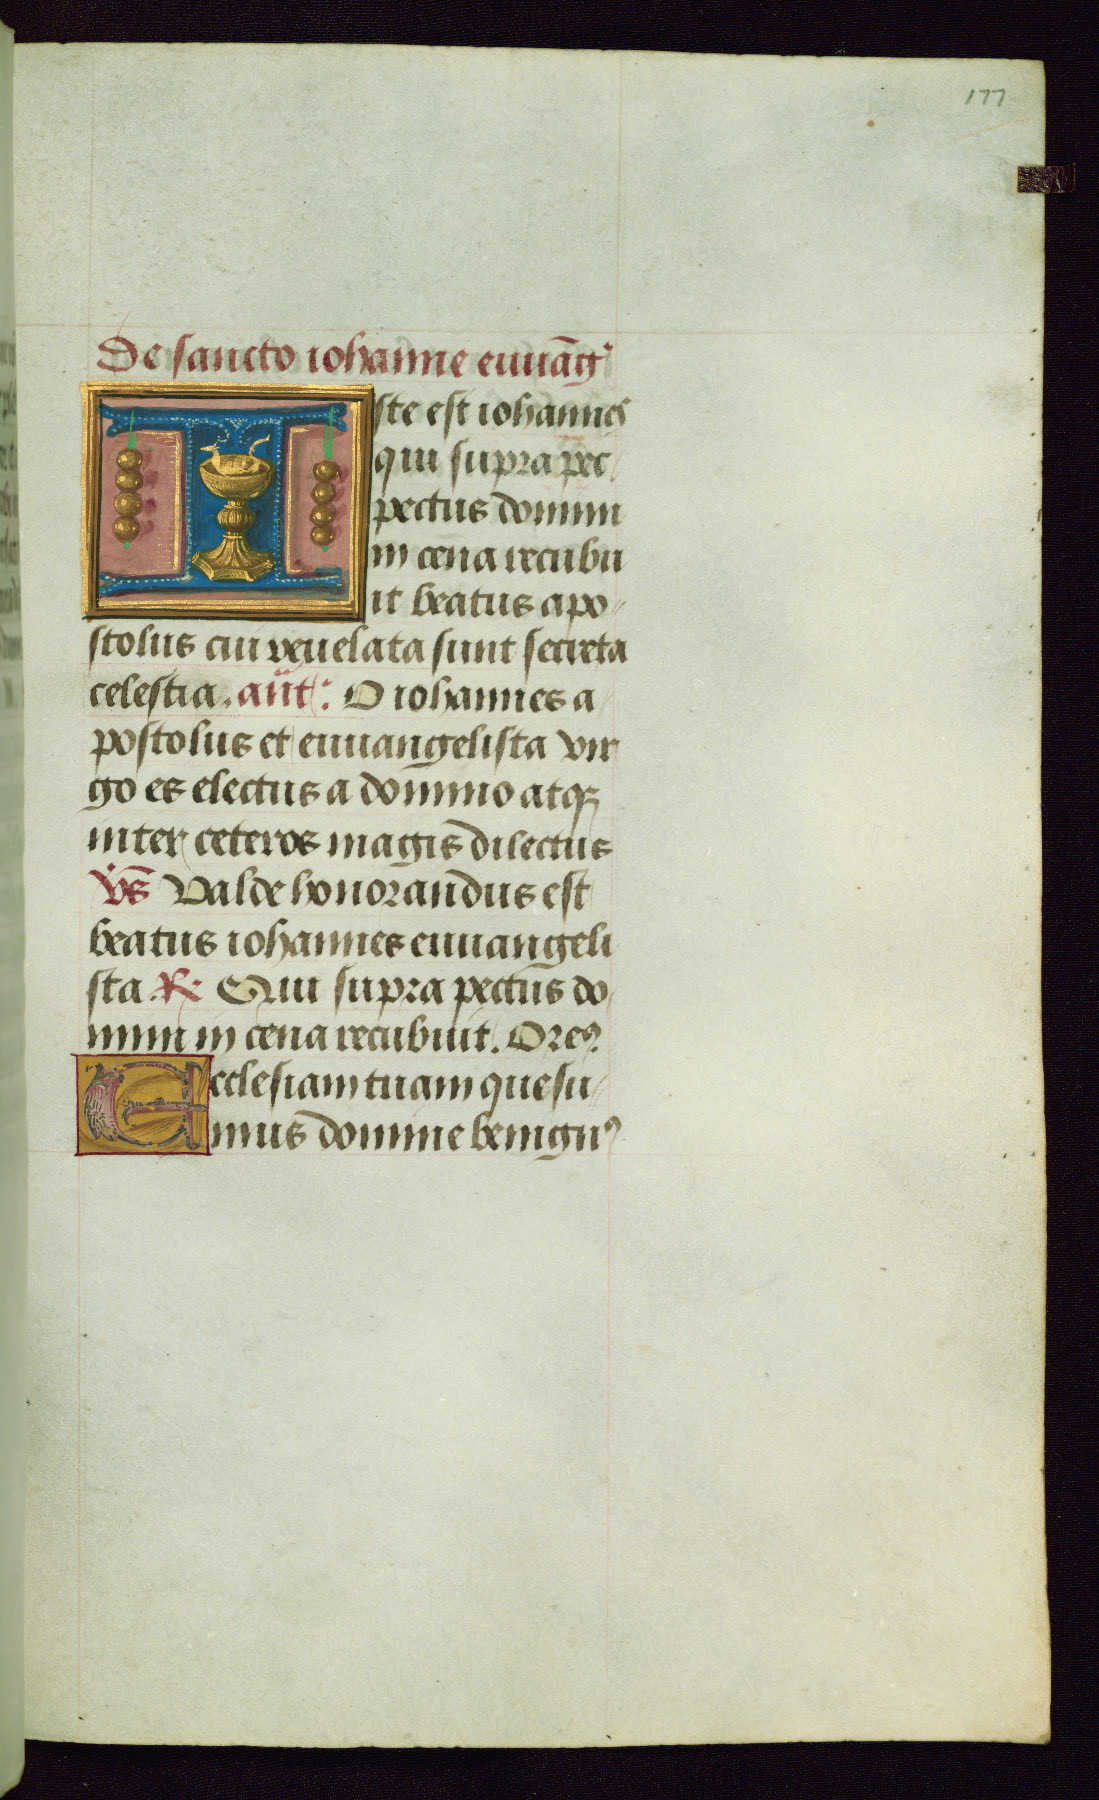 177
De sancto iohanne euuāg
Iste est iohannes
qui supra pec
pectus domini
in cena recubu
it beatus apo
stolus cui reuelata sunt secreta
celestia. añt: O iohannes a
postolus et euuangelista vir
go es electus a domino atqꝫ
inter ceteros magis dilectus
v̄s Valde honorandus est
beatus iohannes euuangeli
sta R: Qui supra pectus do
mini in cena recubuit. Oreꝰ
Ecclesiam tuam quesu
mus domine benignꝰ